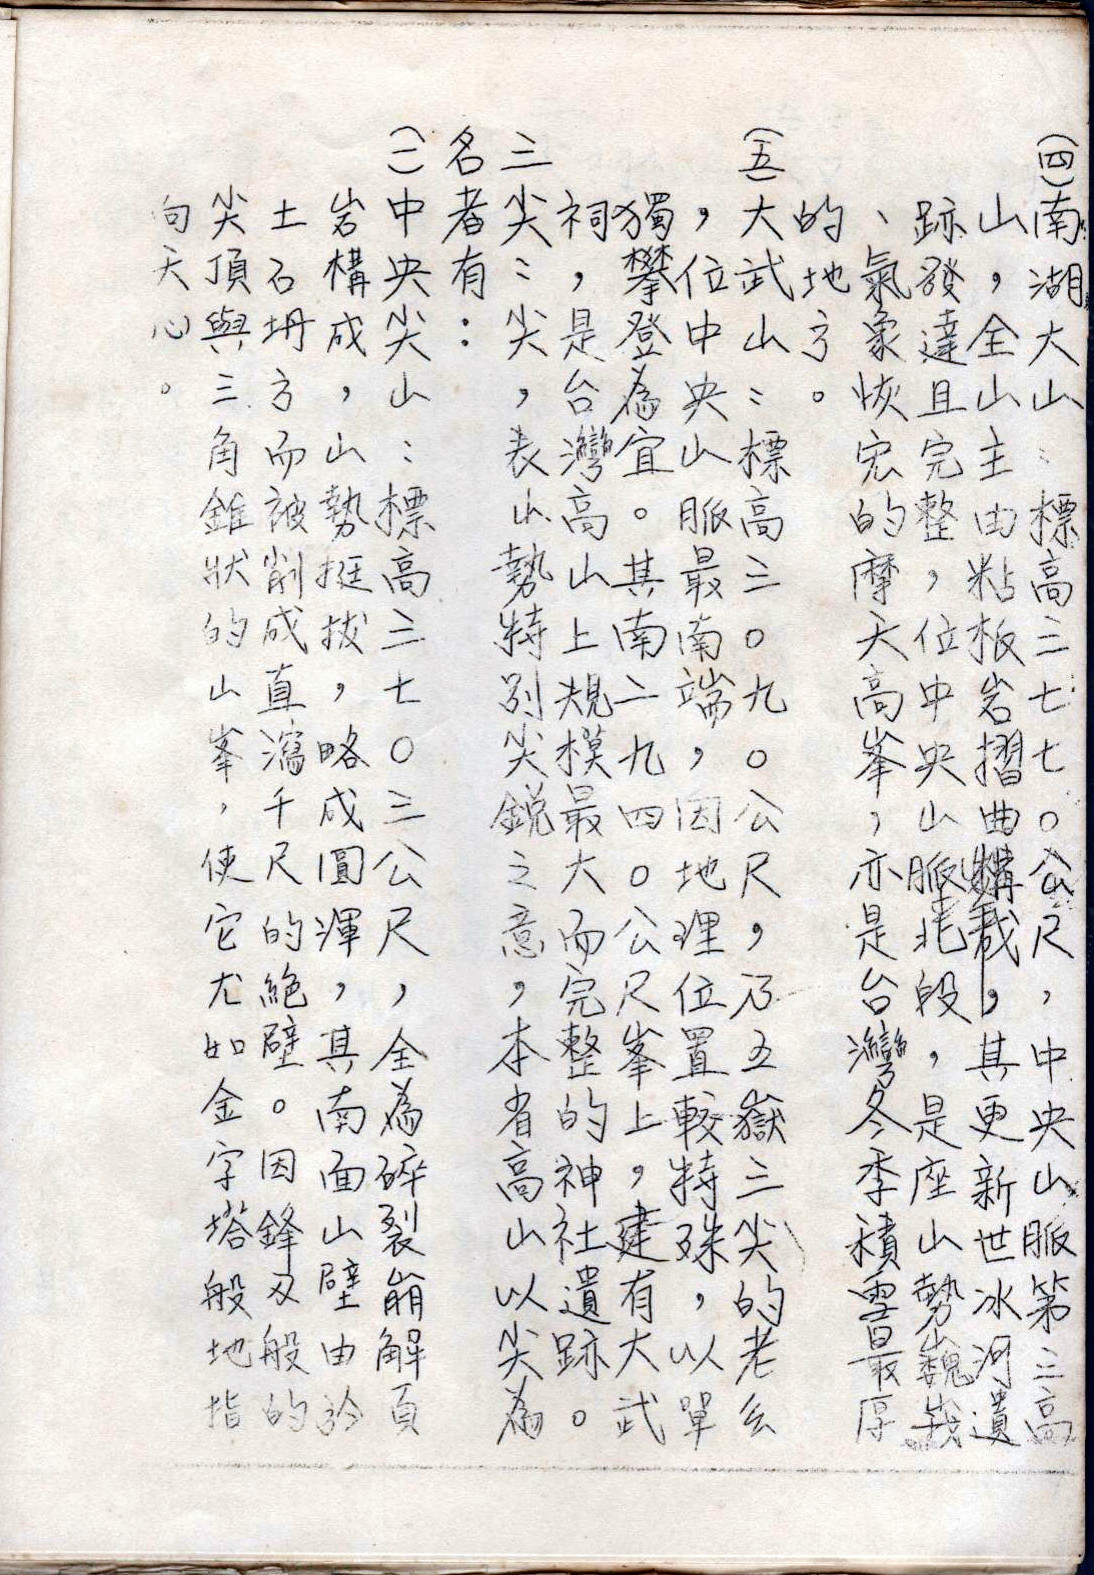 (四)南湖大山：標高三七七〇公尺，中央山脈第三高
山，全山主由粘板岩摺曲構成，其更新世冰河遺
跡發達且完整，位中央山脈北段，是座山勢巍峩
、氣象恢宏的摩天高峯，亦是台灣冬季積雪最厚
的地方。
(五)大武山：標高三〇九〇公尺，乃五嶽三尖的老么
，位中央山脈最南端，因地理位置較特殊，以單
獨攀登為宜。其南二九四〇公尺峯上，建有大武
祠，是台灣高山上規模最大而完整的神社遺跡。
三尖：尖，表山勢特別尖銳之意，本省高山以尖為
名者有：
(一)中央尖山：標高三七〇三公尺，全為碎裂崩解頁
岩構成，山勢挺拔，略成圓渾，其南面山壁由於
土石坍方而被削成直瀉千尺的絕壁。因鋒刃般的
尖頂與三角錐狀的山峯，使它尤如金字塔般地指
向天心。